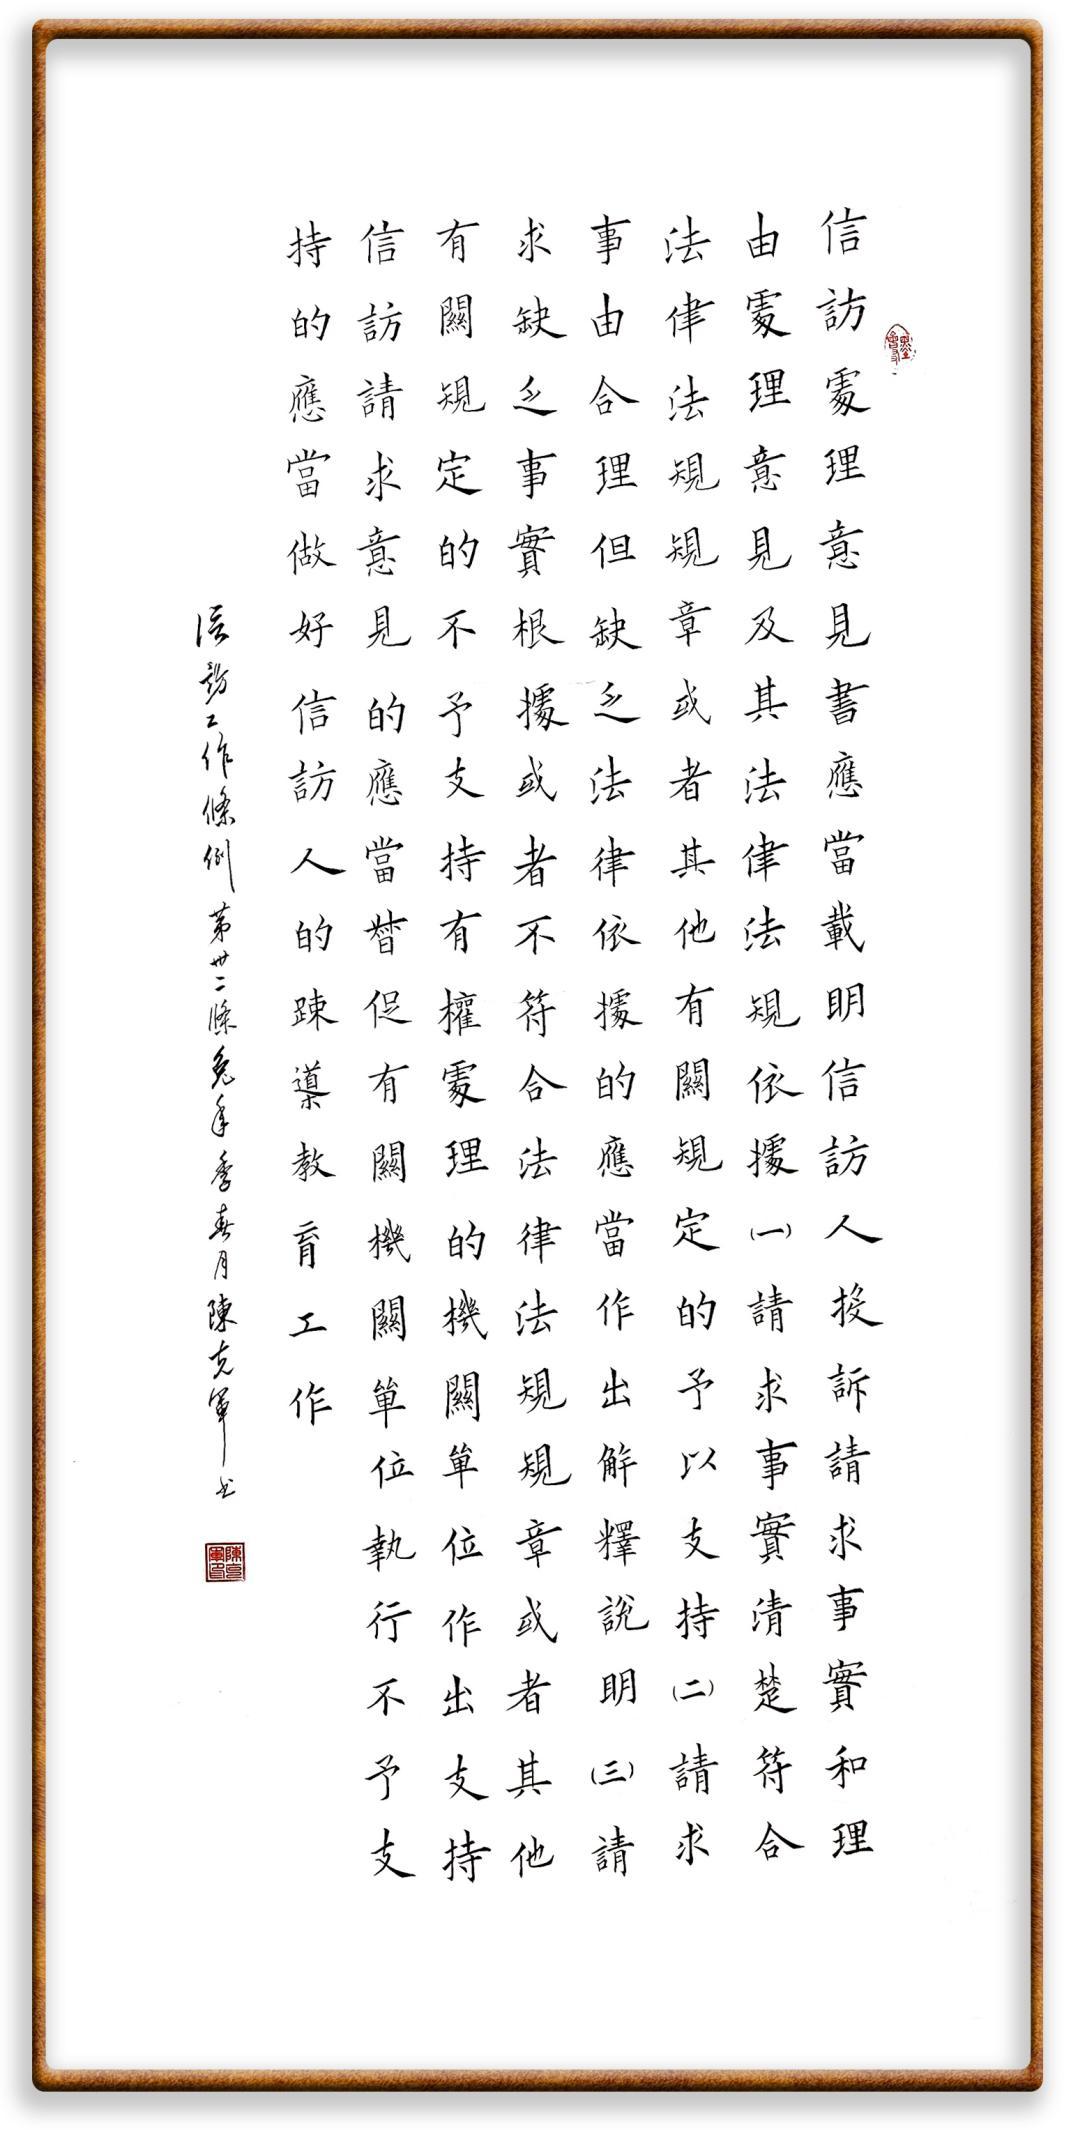 信訪處理意見書應當載明信訪人投訴請求事實和理
由處理意見及其法律法規依據㈠請求事實清楚符合
法律法規規章或者其他有關規定的予以支持㈡請求
事由合理但缺乏法律依據的應當作出解釋說明㈢請
求缺乏事實根據或者不符合法律法規規章或者其他
有關規定的不予支持有權處理的機關單位作出支持
信訪請求意見的應當督促有關機關單位執行不予支
持的應當做好信訪人的疎導教育工作
信訪工作條例第卅二條兔年季春月陳克軍书